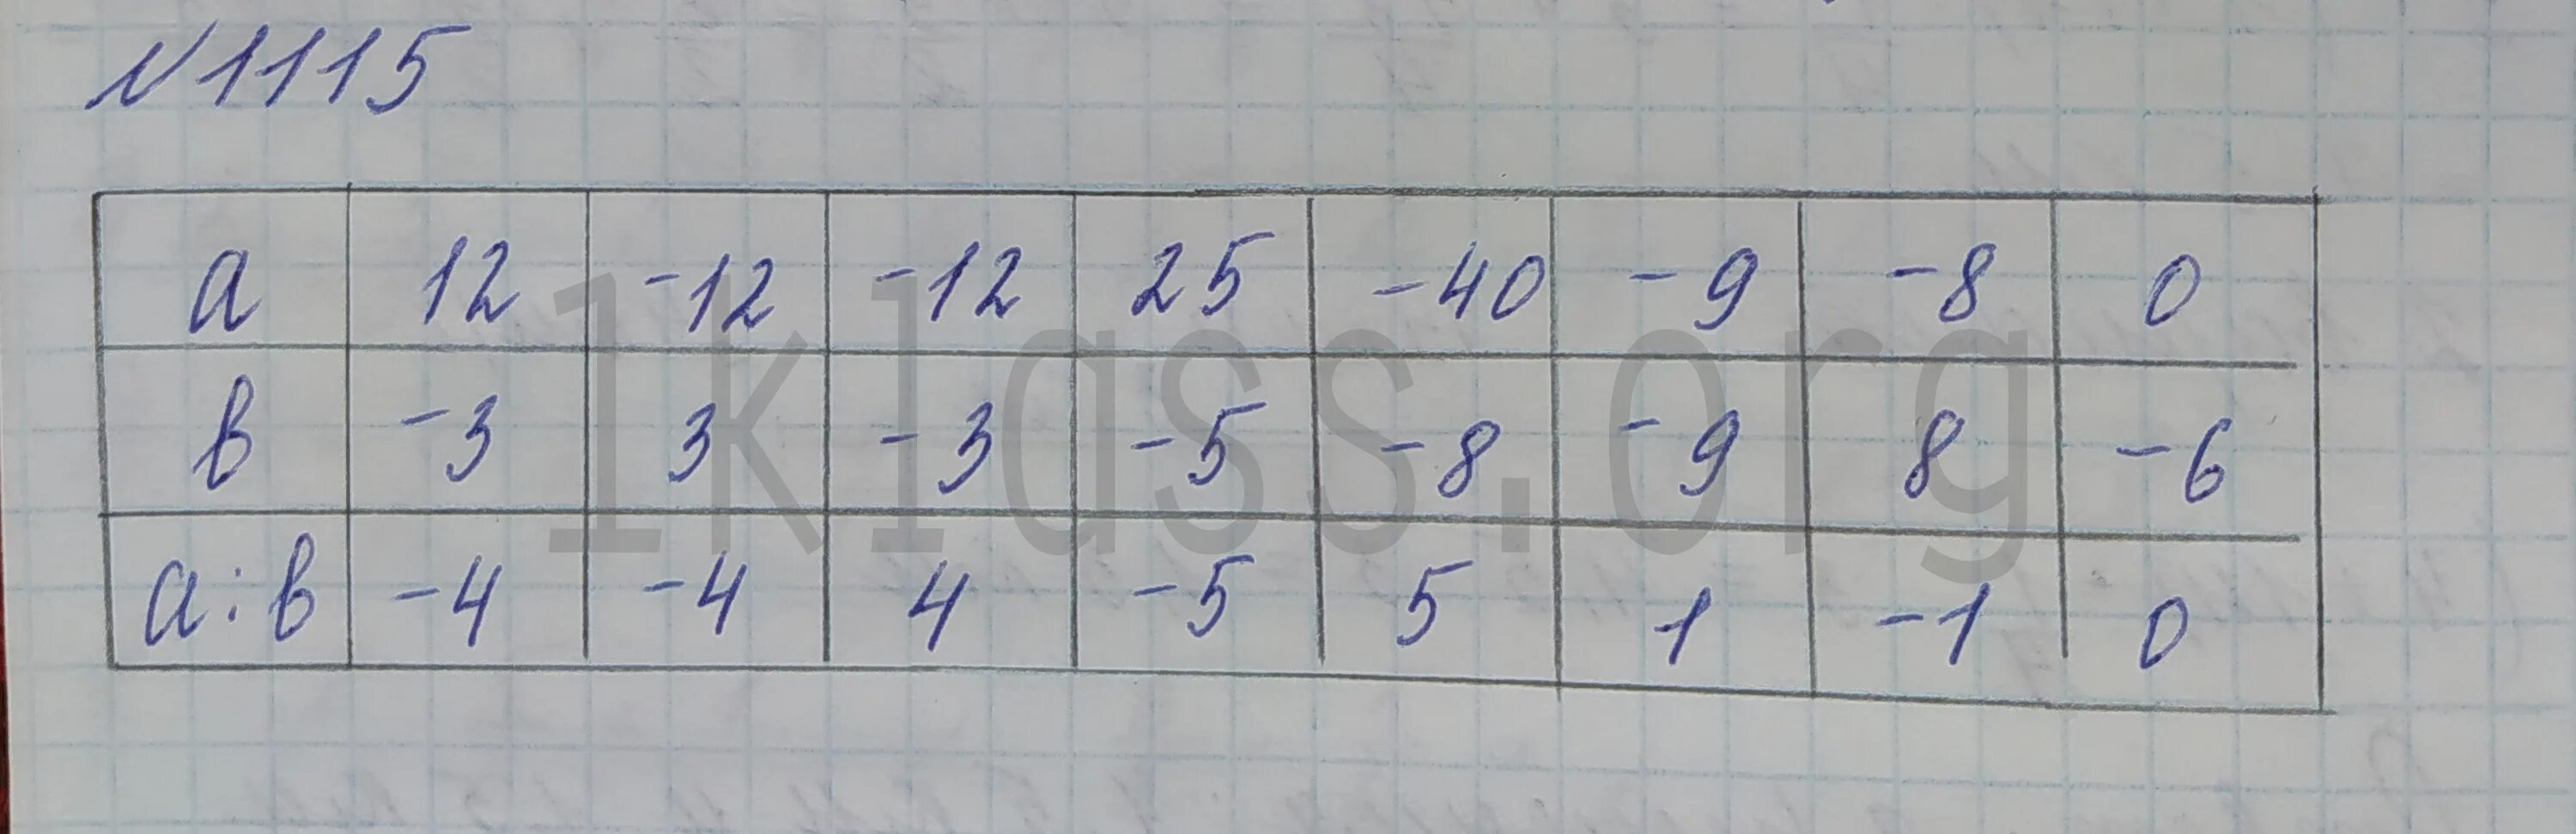 №1115
a 12 -12 -12 25 -40 -9 -8 0
в -3 3 -3 -5 -8 -9 8 -6
a:в -4 -4 4 -5 5 1 -1 0
1klass.org